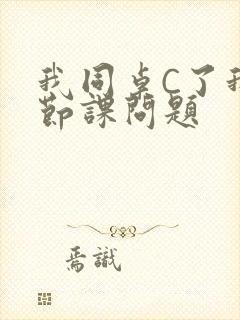 我同桌C了我
節課問題
焉識